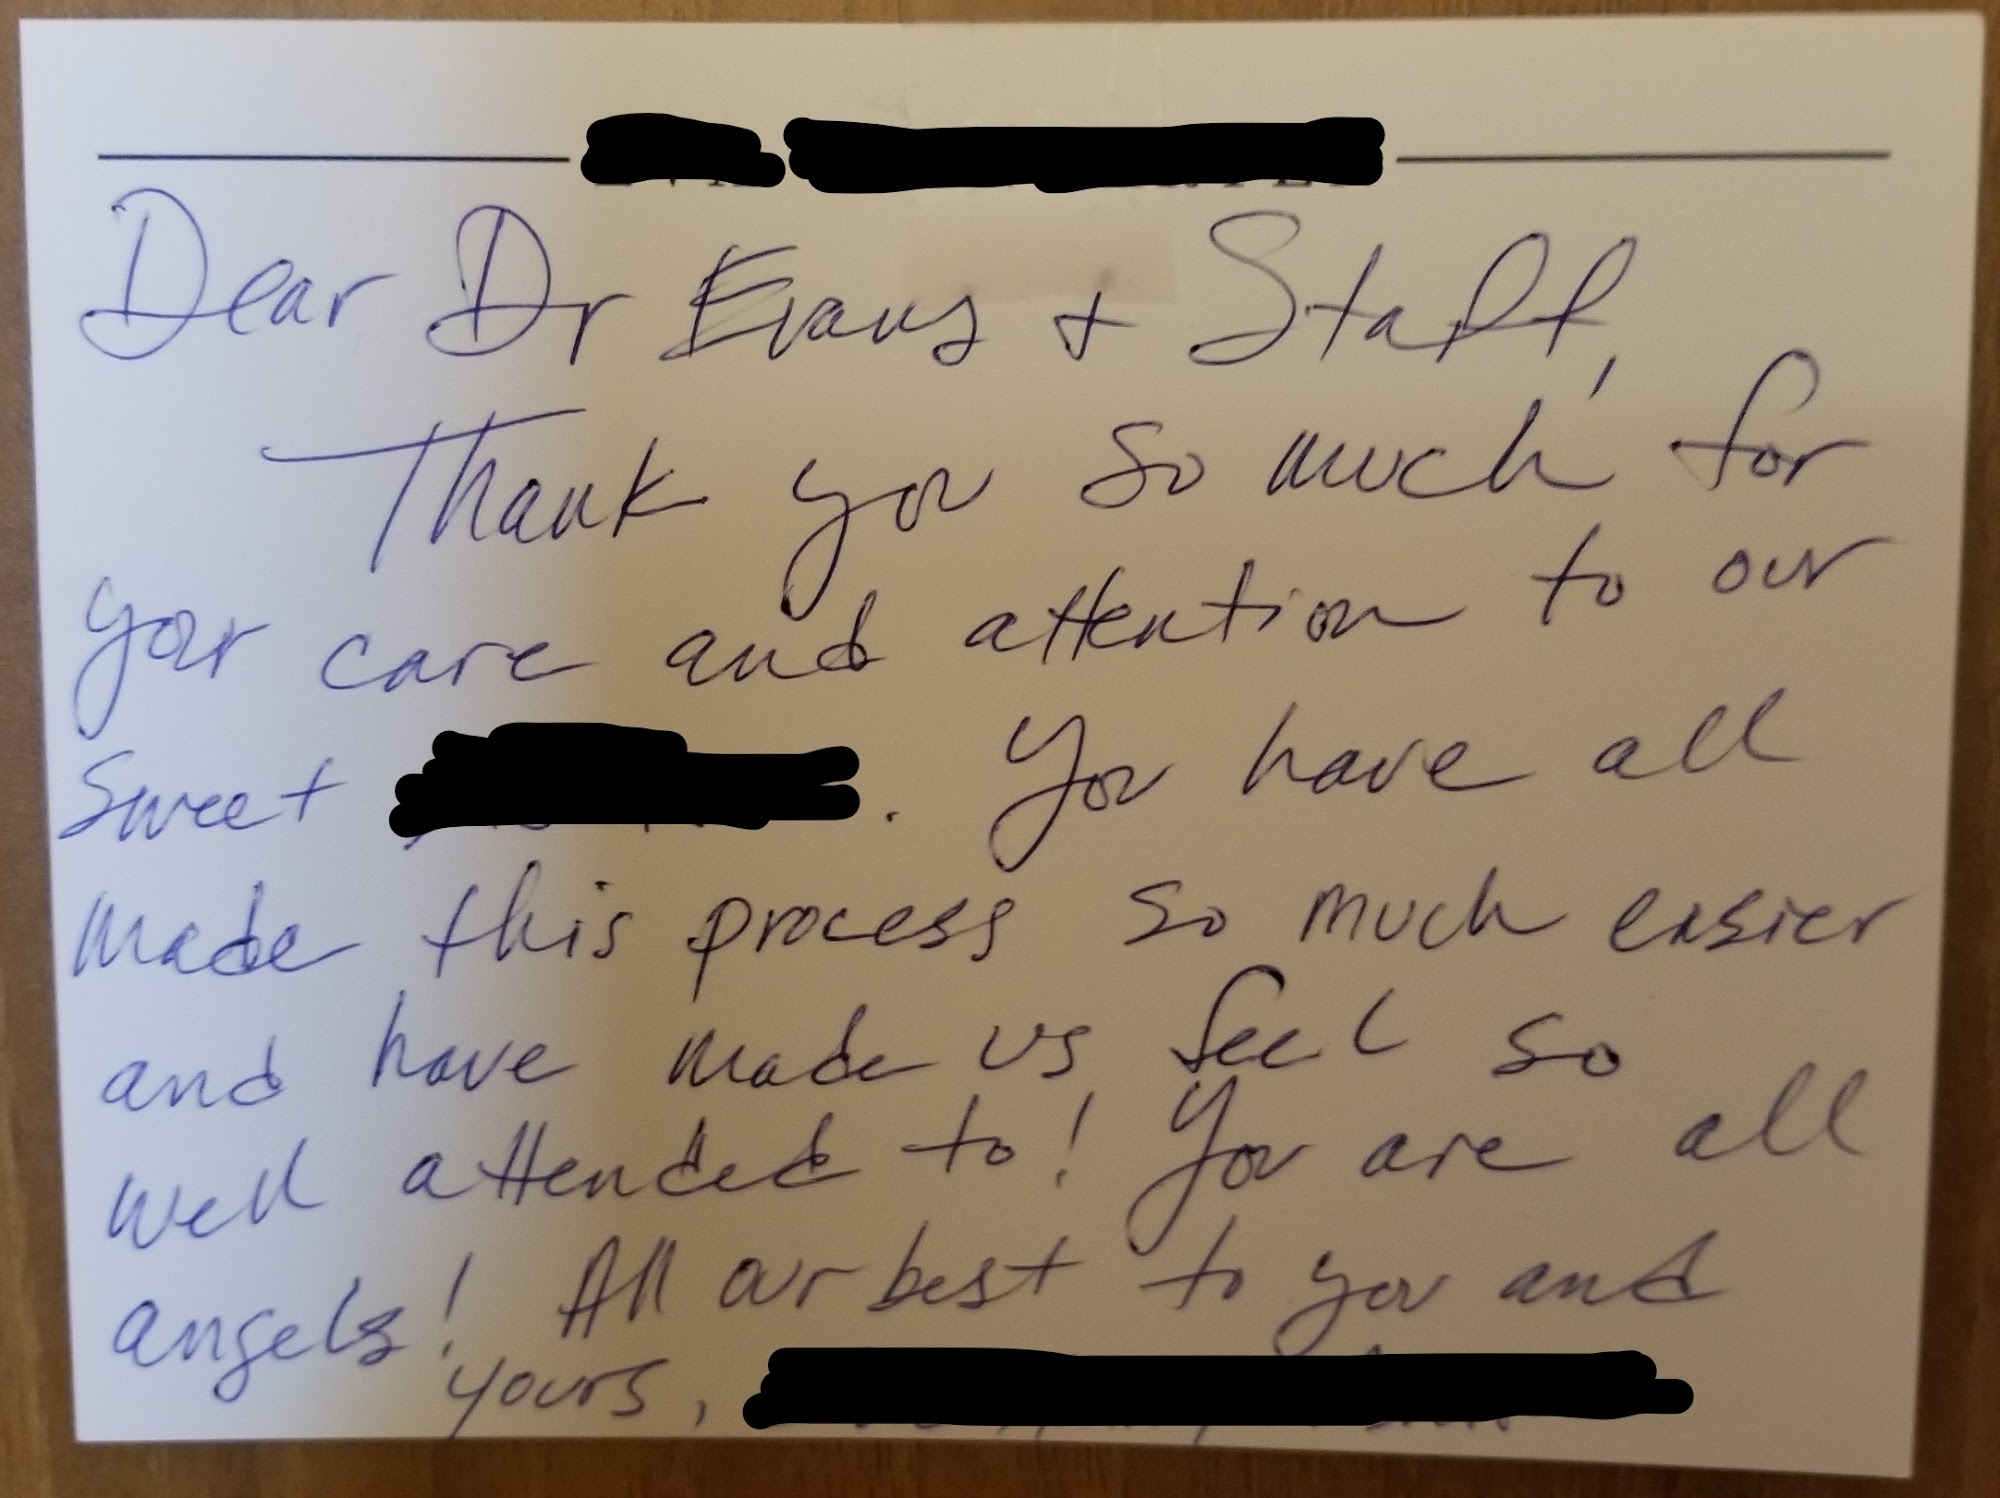 Dear Dr Evans + Staff,
Thank you so much for
your care and attention to our
Sweet . You have all
made this process so much easier
and have made us feel so
well attended to! You are all
angels! All our best to you and
yours,